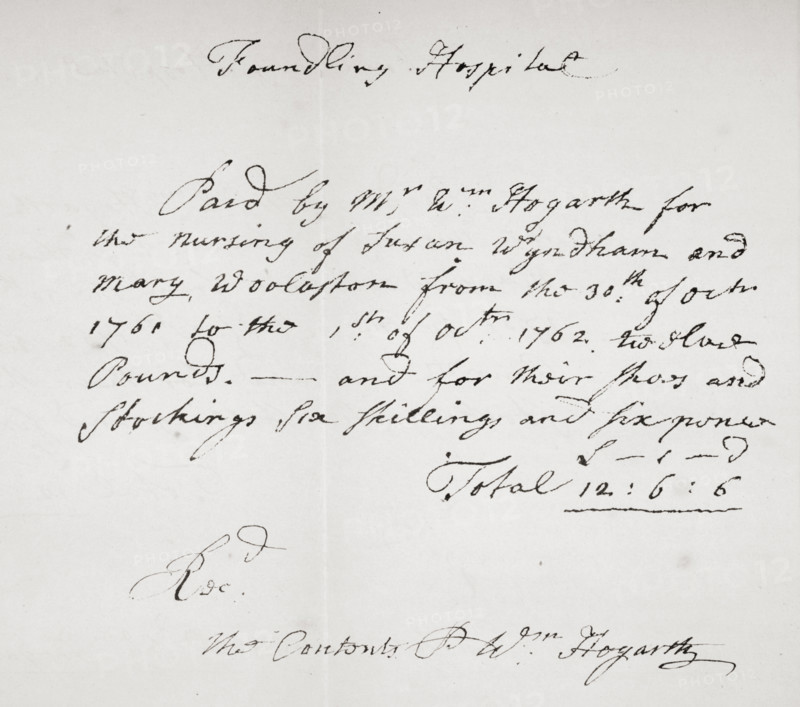 Foundling Hospital
Paid by Mr Wm Hogarth for
the nursing of Susan Wyndham and
Mary Woolaston from the 30th of Octr
1761 to the 1st of Octr 1762. twelve
Pounds. — and for their shoes and
Stockings Six shillings and six pence
L — s — d
Total 12 : 6 : 6
Recd
the Contents P Wm Hogarth